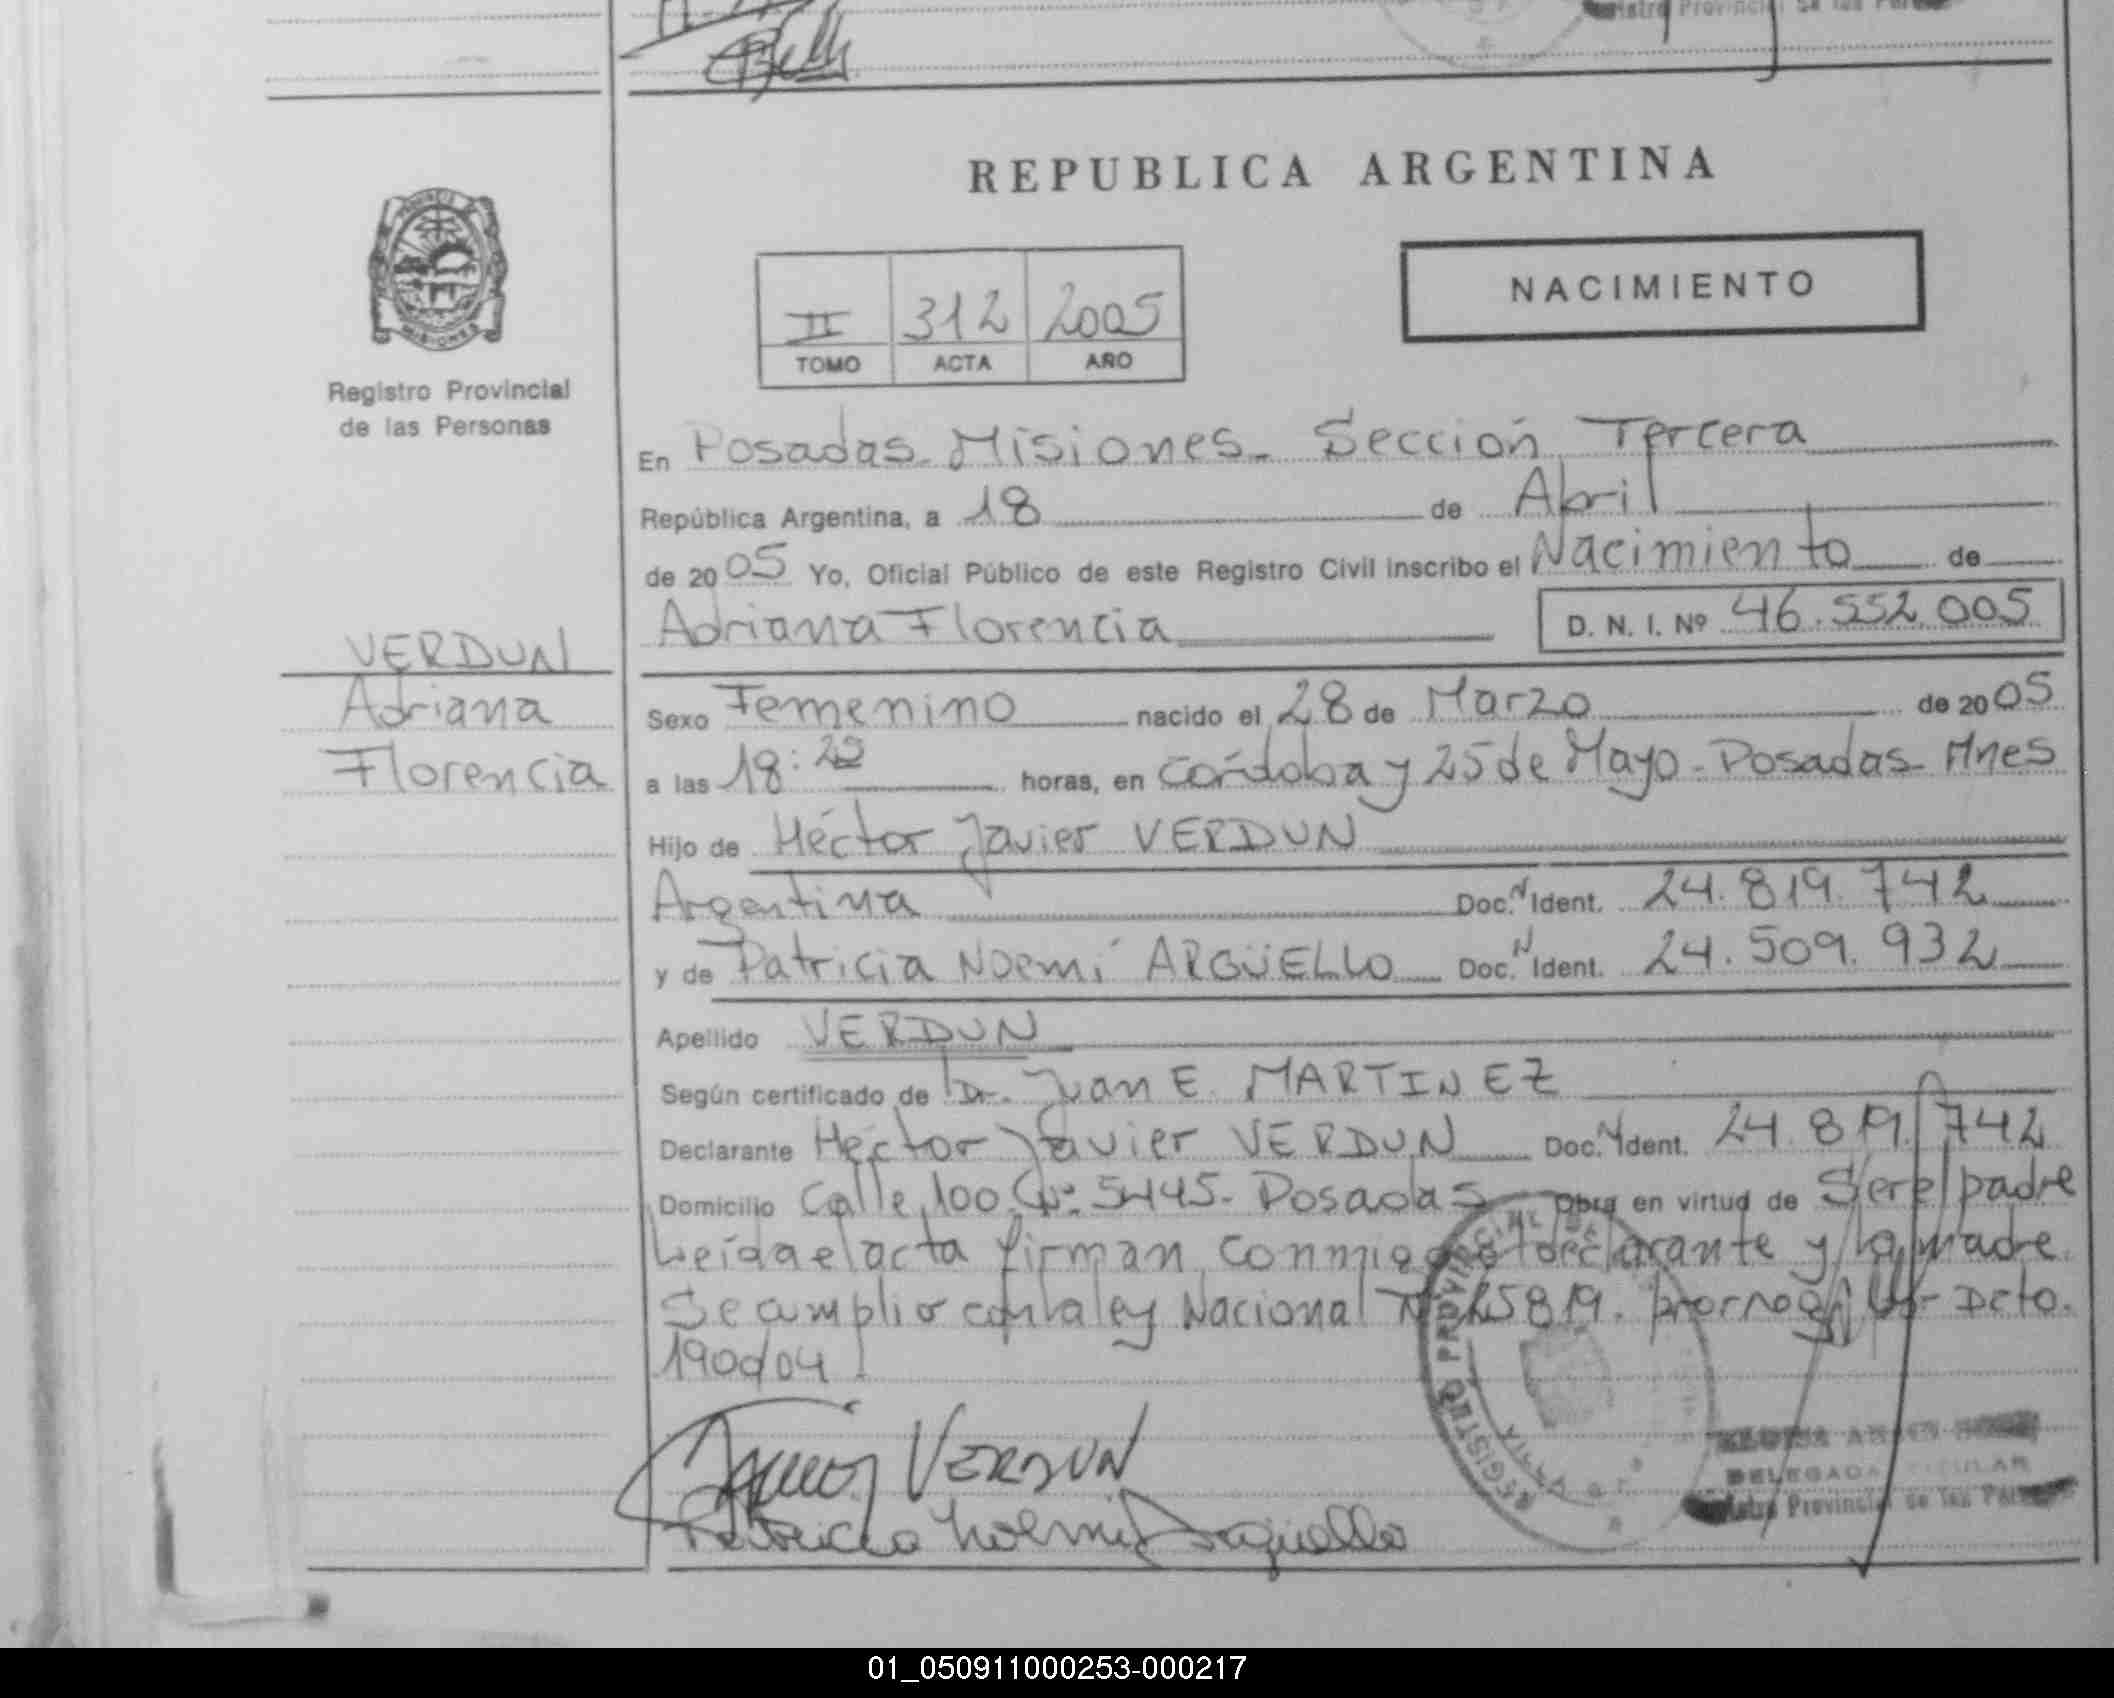 REPUBLICA ARGENTINA
NACIMIENTO
II 312 2005
TOMO ACTA AÑO
MISIONES
Registro Provincial
de las Personas
En Posadas - Misiones - Sección Tercera
República Argentina, a 18 de Abril
de 2005 Yo, Oficial Público de este Registro Civil inscribo el Nacimiento de
Adriana Florencia D. N. I. Nº 46.552.005
VERDUN
Adriana
Florencia
Sexo Femenino nacido el 28 de Marzo de 2005
a las 18: horas, en Córdoba y 25 de Mayo - Posadas - Mnes
Hijo de Héctor Javier VERDUN
Argentina Doc. N Ident. 24.819.742
y de Patricia Noemí ARGÜELLO Doc. N Ident. 24.509.932
Apellido VERDUN
Según certificado de Dr. Juan E. MARTINEZ
Declarante Héctor Javier VERDUN Doc. N Ident. 24.819.742
Domicilio Calle 100 Nº 5445 - Posadas Obra en virtud de Ser el padre
Leída el acta firman conmigo el declarante y la madre.
Se amplio con la ley Nacional Nº 25819. Dcto.
1900/04
Javier VERDUN
Patricia Noemi Arguello
REGISTRO PROVINCIAL DE
DELEGADA TITULAR
Registro Provincial de las Personas
01_050911000253-000217